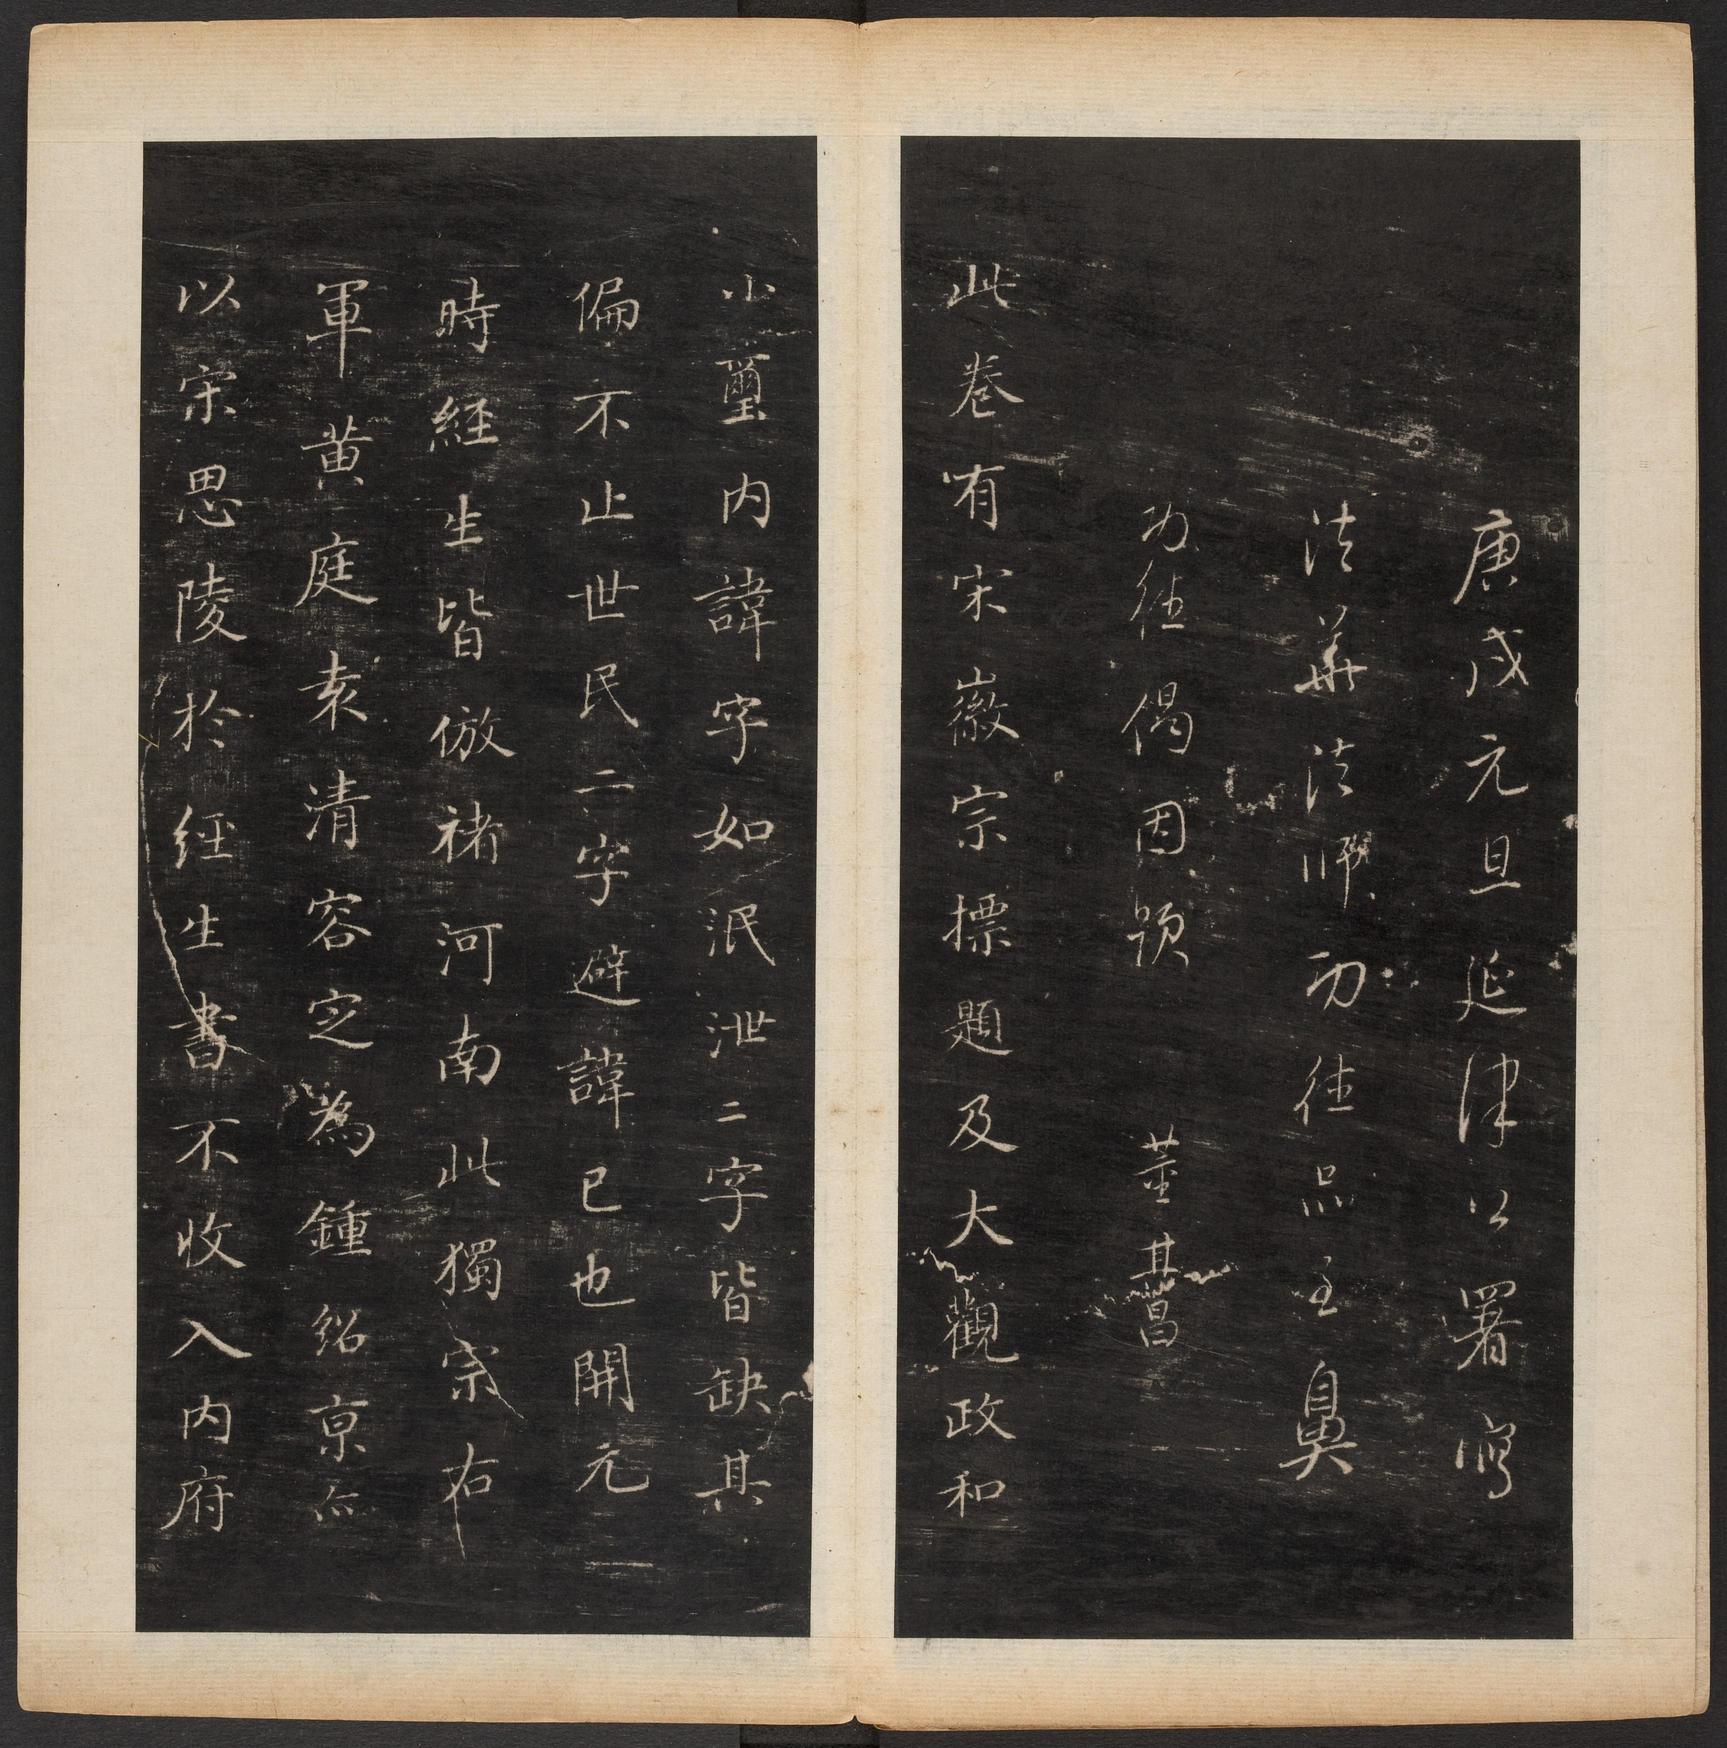 庚戌元旦延津公署寫
法華法師功德品至鼻
功德偈因題 董其昌
此卷有宋徽宗摽題及大觀政和
小璽内諱字如泯泄二字皆缺其
偏不止世民二字避諱已也開元
時經生皆倣褚河南此獨宗右
軍黄庭袁清容定為鍾紹京亦
以宋思陵於經生書不收入内府